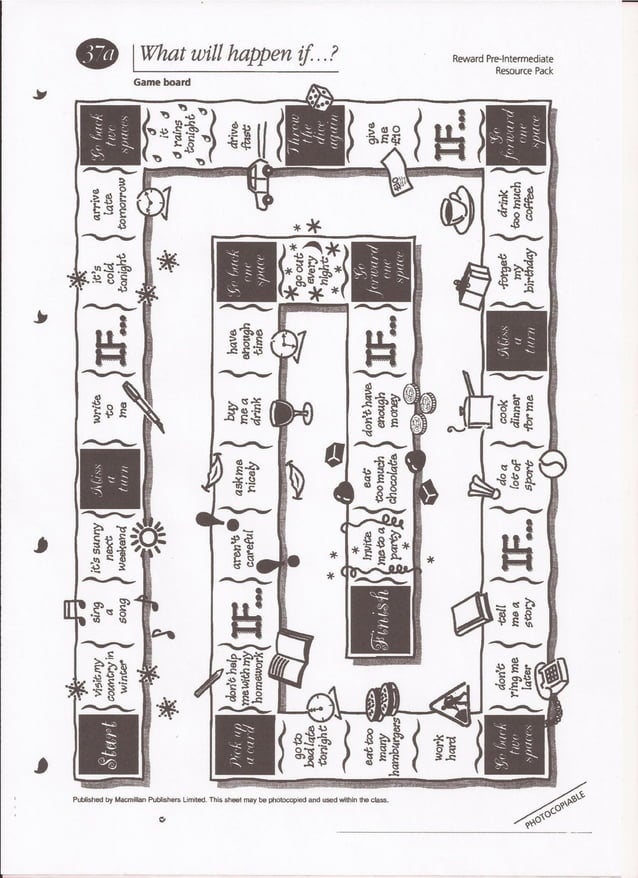 37a
What will happen if...?
Reward Pre-Intermediate
Resource Pack
Game board
Start
visit my
country in
winter
sing
a
song
it's sunny
next
weekend
Miss
a
turn
write
to
me
IF...
it's
cold
tonight
arrive
late
tomorrow
Go back
two
spaces
it
rains
tonight
drive
fast
Throw
the
dice
again
give
me
£10
£10
IF...
Go
forward
one
space
drink
too much
coffee
forget
my
birthday
Miss
a
turn
cook
dinner
for me
do a
lot of
sport
IF...
tell
me a
story
don't
ring me
later
Go back
two
spaces
work
hard
eat too
many
hamburgers
go to
bed late
tonight
Pick up
a card
don't help
me with my
homework
IF...
aren't
careful
ask me
nicely
buy
me a
drink
have
enough
time
Go back
one
space
go out
every
night
Go
forward
one
space
IF...
don't have
enough
money
eat
too much
chocolate
Invite
me to a
party
Finish
Published by Macmillan Publishers Limited. This sheet may be photocopied and used within the class.
PHOTOCOPIABLE